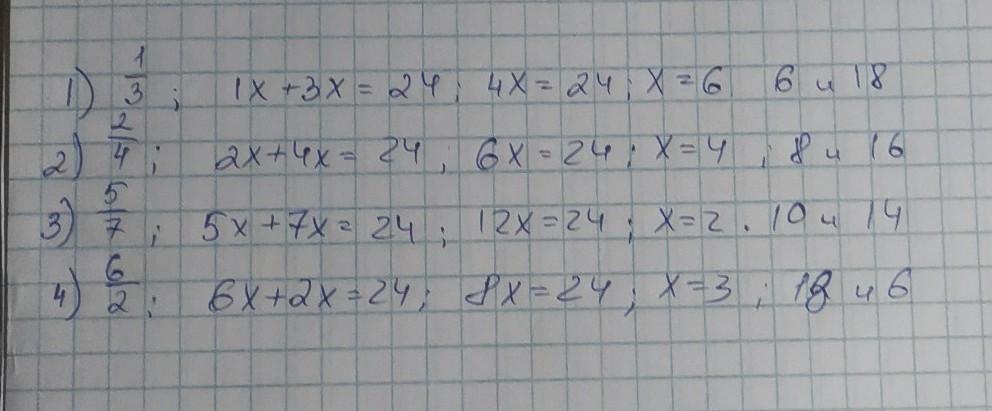 1) 1/3 ; 1x + 3x = 24 ; 4x = 24 ; x = 6 6 и 18
2) 2/4 ; 2x + 4x = 24 ; 6x = 24 ; x = 4 ; 8 и 16
3) 5/7 ; 5x + 7x = 24 ; 12x = 24 ; x = 2 . 10 и 14
4) 6/2 ; 6x + 2x = 24 ; 8x = 24 ; x = 3 ; 18 и 6